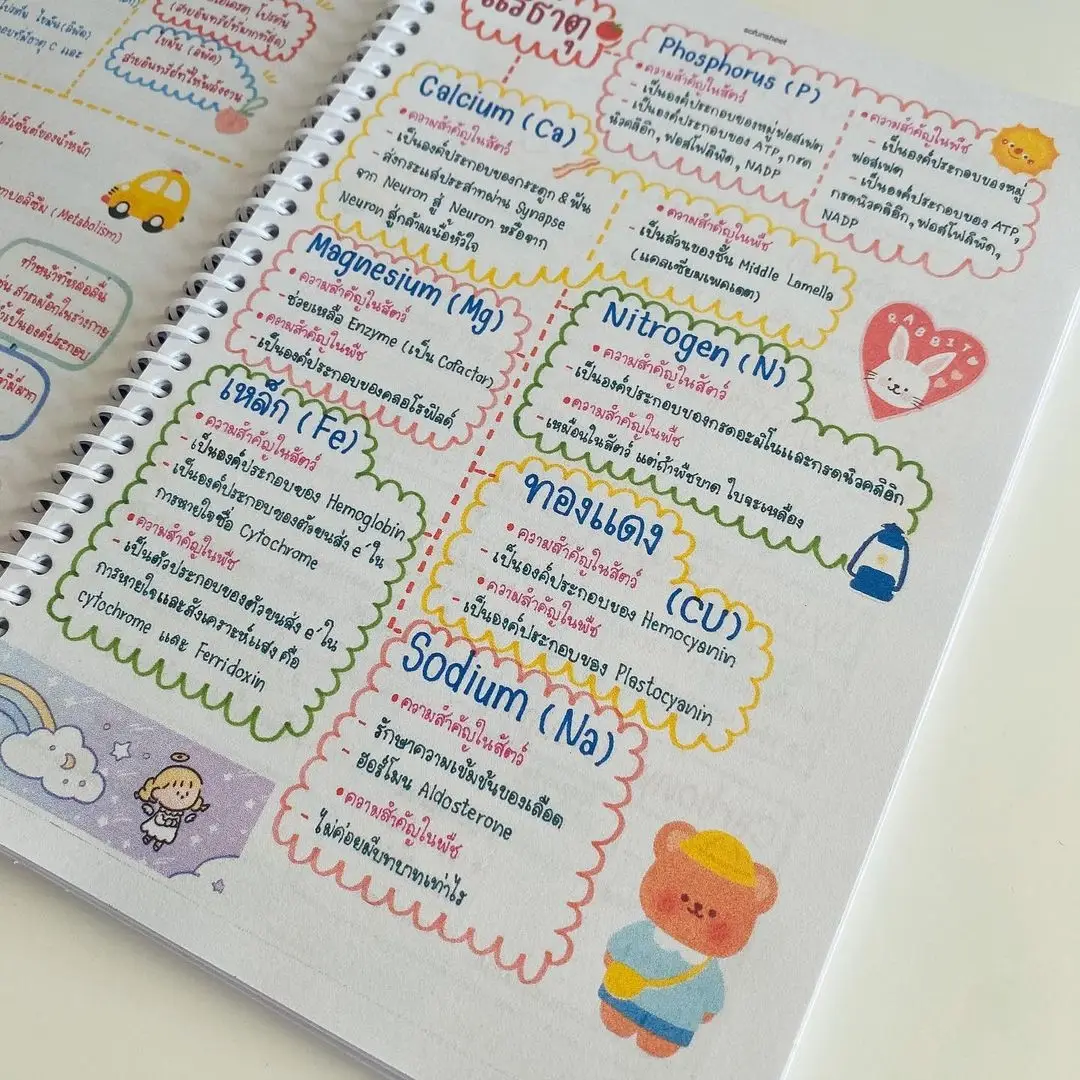 โปรตีน
(สารอินทรีย์ที่มากที่สุด)
ไขมัน (ลิพิด)
สารอินทรีย์ที่ให้พลังงาน
(Metabolism)
ทำหน้าที่หล่อลื่น
แร่ธาตุ
aofunsheet
Phosphorus (P)
•ความสำคัญในสัตว์
- เป็นองค์ประกอบของหมู่ฟอสเฟต
- เป็นองค์ประกอบของ ATP, กรด
นิวคลิอิก, ฟอสโฟลิพิด, NADP
•ความสำคัญในพืช
- เป็นองค์ประกอบของหมู่
ฟอสเฟต
- เป็นองค์ประกอบของ ATP,
กรดนิวคลิอิก, ฟอสโฟลิพิด,
NADP
Calcium (Ca)
•ความสำคัญในสัตว์
- เป็นองค์ประกอบของกระดูก & ฟัน
- ส่งกระแสประสาทผ่าน Synapse
จาก Neuron สู่ Neuron หรือจาก
Neuron สู่กล้ามเนื้อหัวใจ
•ความสำคัญในพืช
- เป็นส่วนของชั้น Middle Lamella
(แคลเซียมเพคเตต)
Magnesium (Mg)
•ความสำคัญในสัตว์
- ช่วยเหลือ Enzyme (เป็น Cofactor)
•ความสำคัญในพืช
- เป็นองค์ประกอบของคลอโรฟิลด์
Nitrogen (N)
•ความสำคัญในสัตว์
- เป็นองค์ประกอบของกรดอะมิโนและกรดนิวคลิอิก
•ความสำคัญในพืช
- เหมือนในสัตว์ แต่ถ้าพืชขาด ใบจะเหลือง
RABBIT
เหล็ก (Fe)
•ความสำคัญในสัตว์
- เป็นองค์ประกอบของ Hemoglobin
- เป็นองค์ประกอบของตัวขนส่ง e⁻ ใน
การหายใจชื่อ Cytochrome
•ความสำคัญในพืช
- เป็นตัวประกอบของตัวขนส่ง e⁻ ใน
การหายใจและสังเคราะห์แสง คือ
cytochrome และ Ferridoxin
ทองแดง
(CU)
•ความสำคัญในสัตว์
- เป็นองค์ประกอบของ Hemocyanin
•ความสำคัญในพืช
- เป็นองค์ประกอบของ Plastocyanin
Sodium (Na)
•ความสำคัญในสัตว์
- รักษาความเข้มข้นของเลือด
- ฮอร์โมน Aldosterone
•ความสำคัญในพืช
- ไม่ค่อยมีบทบาทเท่าไร